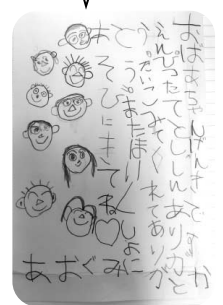 おばあちゃんげんきですか
えんぴつたてと ありがと
う。だいこんみてくれてありが
とう。またほいくしょに
あそびにきてね♡
あおぐみ